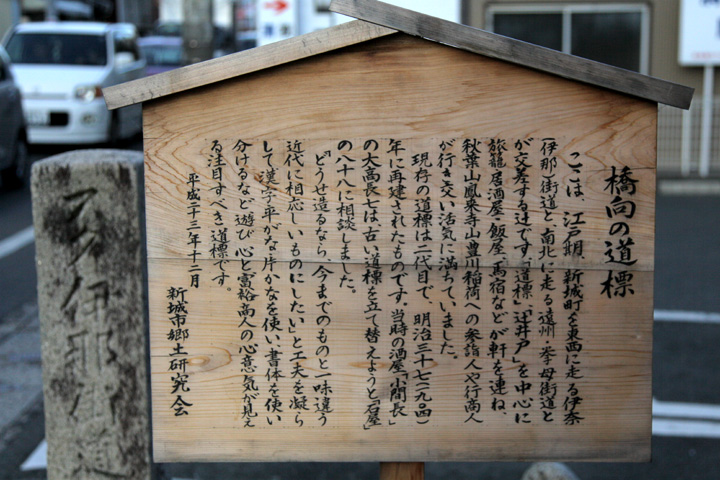 橋向の道標
ここは、江戸期、新城町を東西に走る伊奈
(伊那)街道と南北に走る遠州・挙母街道と
が交差する辻です。「道標」「辻井戸」を中心に
旅籠、居酒屋、飯屋、馬宿などが軒を連ね、
秋葉山、鳳来寺山、豊川稲荷への参詣人や行商人
が行き交い活気に満ちていました。
現存の道標は二代目で、明治三十七(一九〇四)
年に再建されたものです。当時の酒屋「小間長」
の大高長七は古い道標を立て替えようと「石屋」
の八十八に相談しました。
「どうせ造るなら、今までのものと一味違う
近代に相応しいものにしたい」と工夫を凝ら
して漢字、平がな、片かなを使い、書体を使い
分けるなど遊び心と富裕商人の心意気が見え
る注目すべき道標です。
平成二十三年十二月
新城市郷土研究会
伊那街道